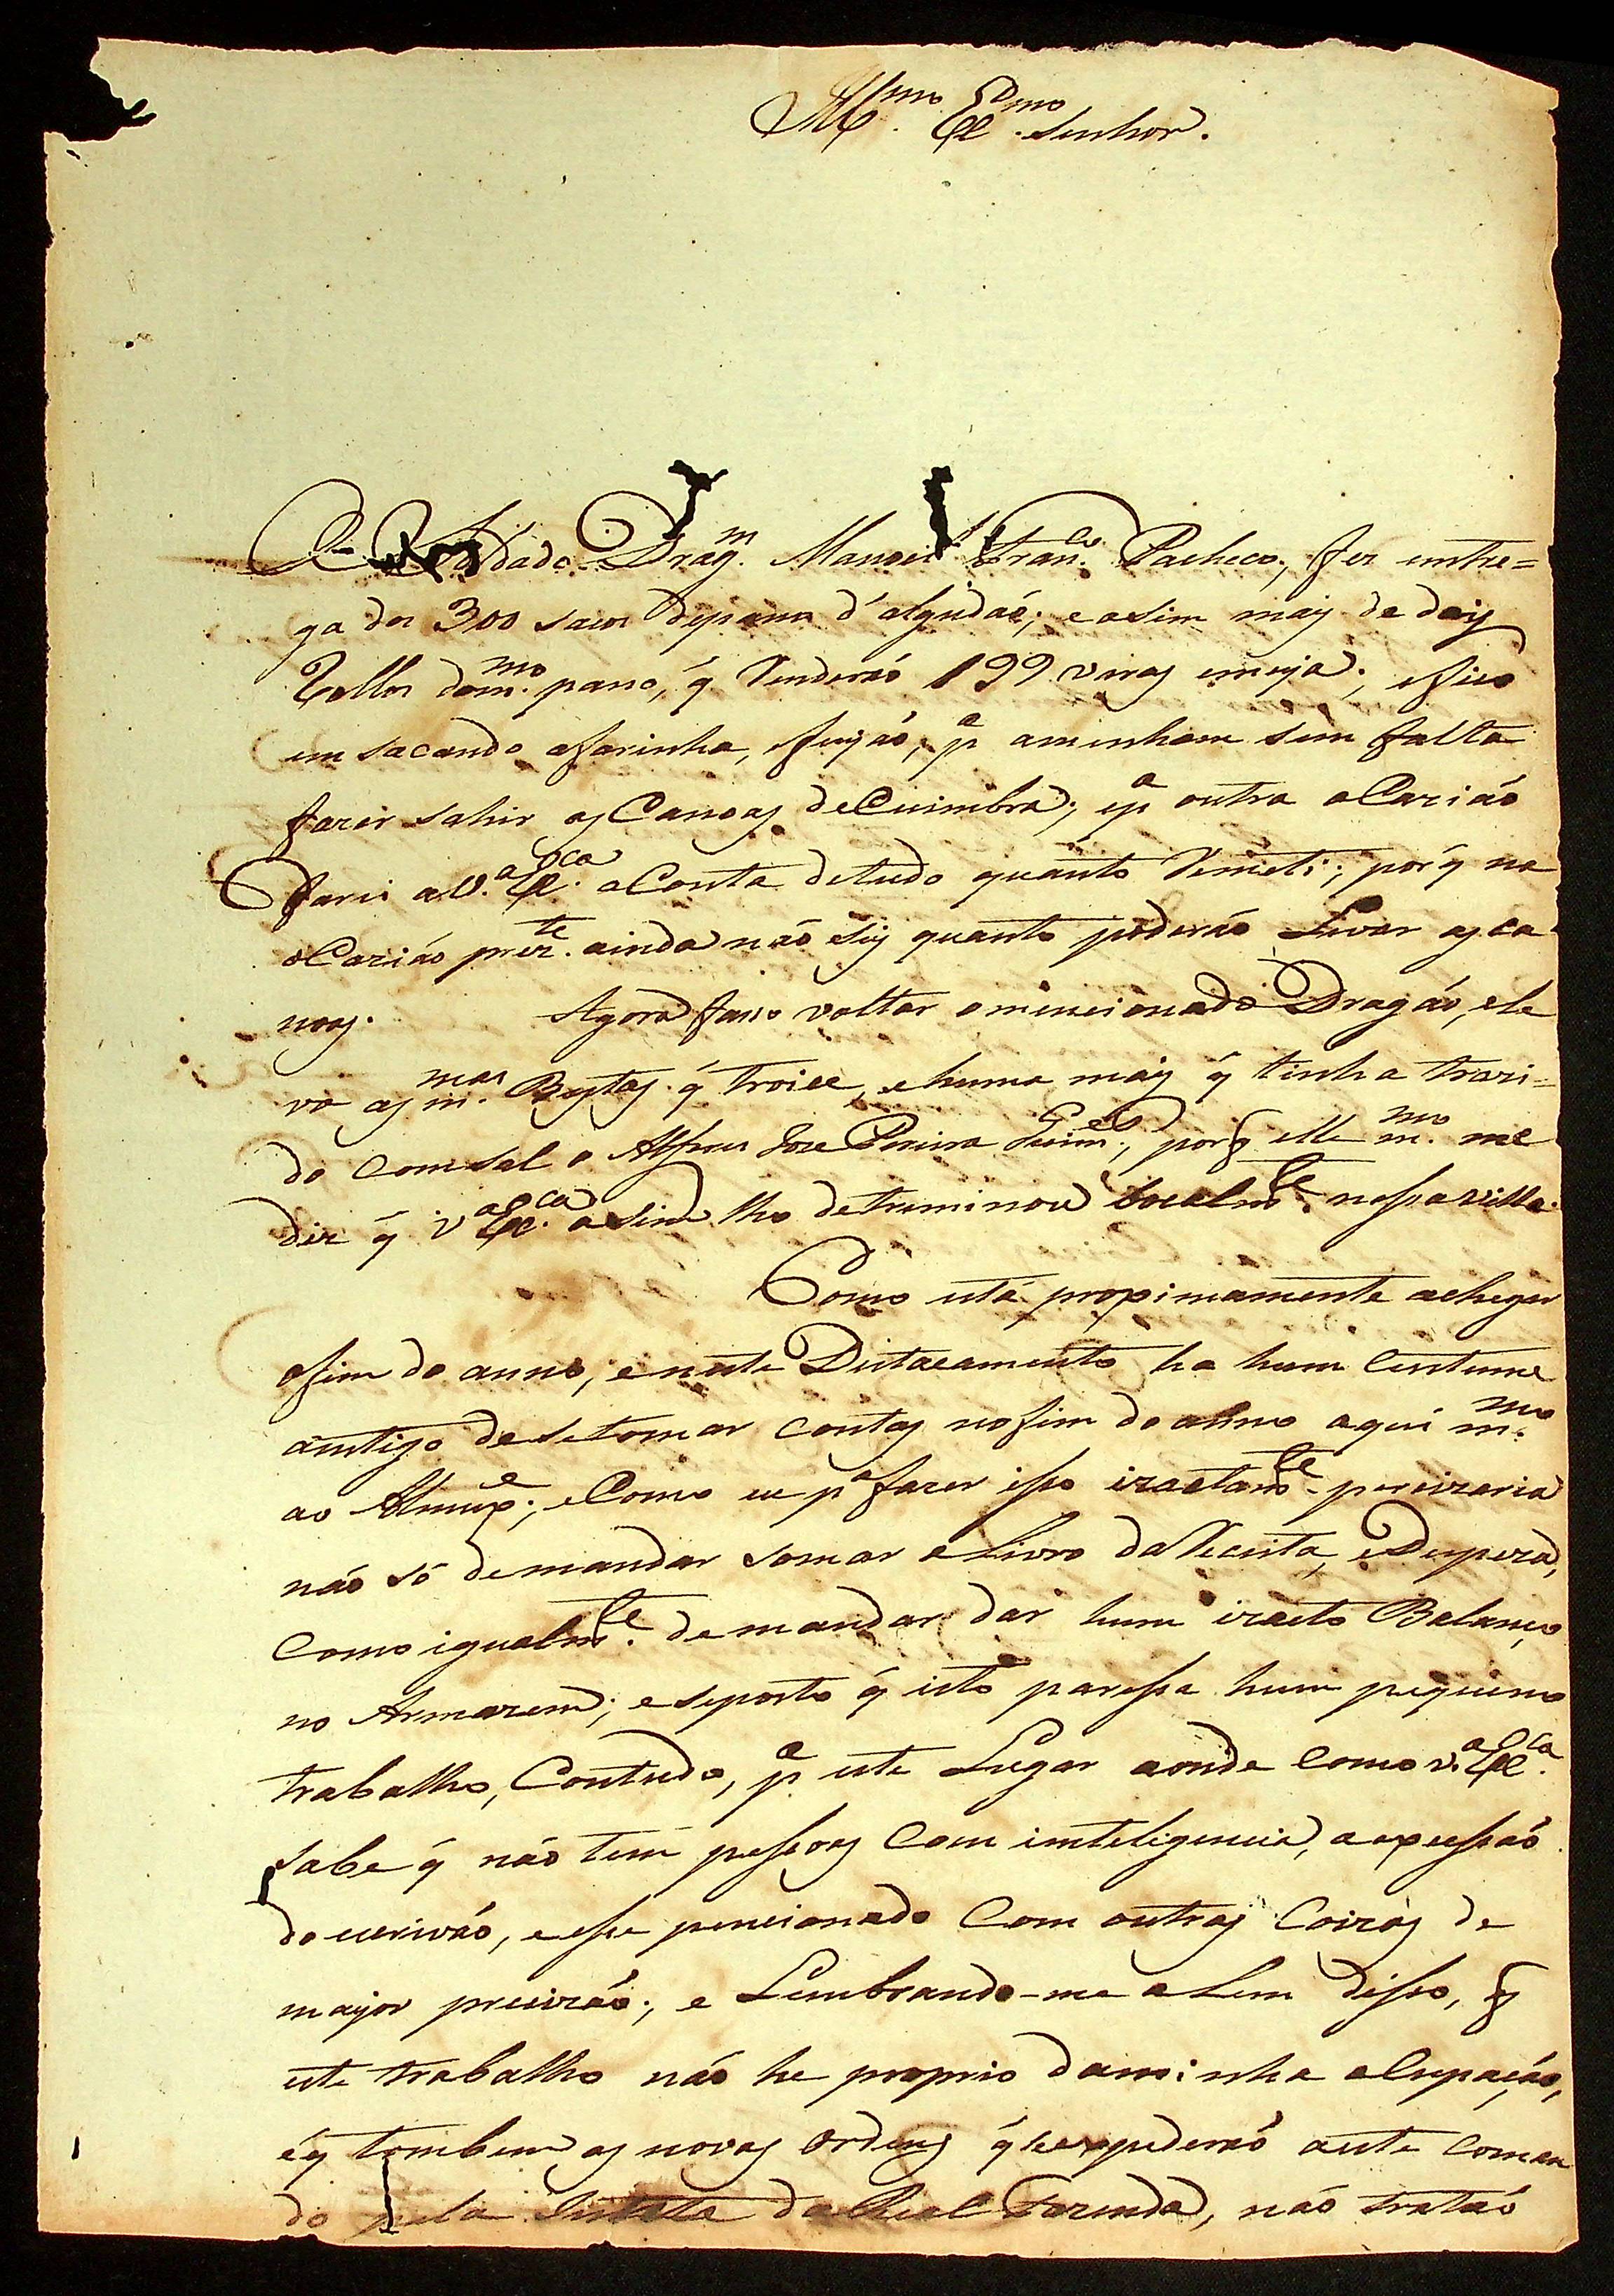 Ill.mo Ex.mo Senhor.
O Soldado Drag.m Manoel Fran.co Pacheco, fez entre=
ga dos 300 sacos depano d'algudaõ; e asim mais de dois
Rollos dom.mo pano, q̃ Renderaõ 199 varas emeja; efico
emsacando afarinha, efeijaõ, p.a amenham sem falta
fazer sahir as Canoas deCuimbra; ep.a outra oCaziaõ
farei a V.a Ex.ca aConta detudo quanto Remeti; porq̃ na
oCaziaõ prez.te ainda naõ sey quanto poderaõ Levar as ca
noas. Agora faço voltar omencionado Dragaõ, ele
va as m.mas Bestas q̃ troice, ehuma mais q̃ tinha trazi=
do comsal o Alferes Joze Pereira Guim.es, porq̃ elle m.mo me
diz q̃ V.a Ex.ca asim lho detreminou bocalm.te nessa villa.
Como está proximamente achegar
ofim do anno, eneste Distacamento ha hum Custume
antigo de setomar contas nofim do anno aqui m.mo
ao Almux.e; eComo eu p.a fazer isso izactam.te percizaria
naõ só demandar somar oLivro daReceita, eDespeza,
Como igualm.te demandar dar hum izacto Balanço
no Armazem; eseposto q̃ isto paressa hum piqueno
trabalho, Contudo, p.a este Lugar aonde Como V.a Ex.ca
sabe q̃ naõ tem pessoas Com inteligencia, aexcessaõ
do escrivaõ, eesse pencionado Com outras Coizas de
major precizaõ; e Lembrando-me aLem disso, q̃
este trabalho naõ he proprio daminha oCupaçaõ,
éq̃ tombem as novas Ordens q̃ seexpederaõ aeste Coman
do pela Junta da Real Fazenda, naõ trataõ